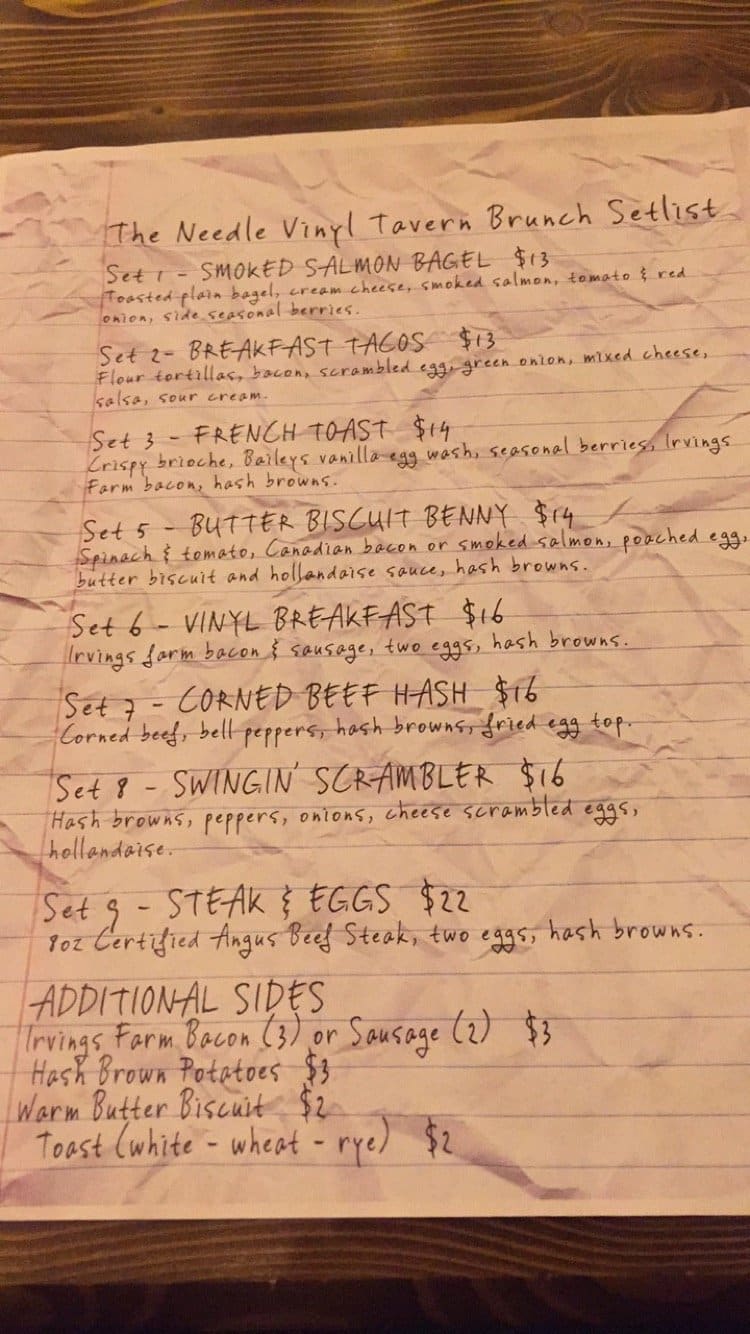 The Needle Vinyl Tavern Brunch Setlist
Set 1 - SMOKED SALMON BAGEL $13
Toasted plain bagel, cream cheese, smoked salmon, tomato & red
onion, side seasonal berries.
Set 2- BREAKFAST TACOS $13
Flour tortillas, bacon, scrambled egg, green onion, mixed cheese,
salsa, sour cream.
Set 3 - FRENCH TOAST $14
Crispy brioche, Baileys vanilla egg wash, seasonal berries, Irvings
Farm bacon, hash browns.
Set 5 - BUTTER BISCUIT BENNY $14
Spinach & tomato, Canadian bacon or smoked salmon, poached egg,
butter biscuit and hollandaise sauce, hash browns.
Set 6 - VINYL BREAKFAST $16
Irvings farm bacon & sausage, two eggs, hash browns.
Set 7 - CORNED BEEF HASH $16
Corned beef, bell peppers, hash browns, fried egg top.
Set 8 - SWINGIN' SCRAMBLER $16
Hash browns, peppers, onions, cheese scrambled eggs,
hollandaise.
Set 9 - STEAK & EGGS $22
8oz Certified Angus Beef Steak, two eggs, hash browns.
ADDITIONAL SIDES
Irvings Farm Bacon (3) or Sausage (2) $3
Hash Brown Potatoes $3
Warm Butter Biscuit $2
Toast (white - wheat - rye) $2